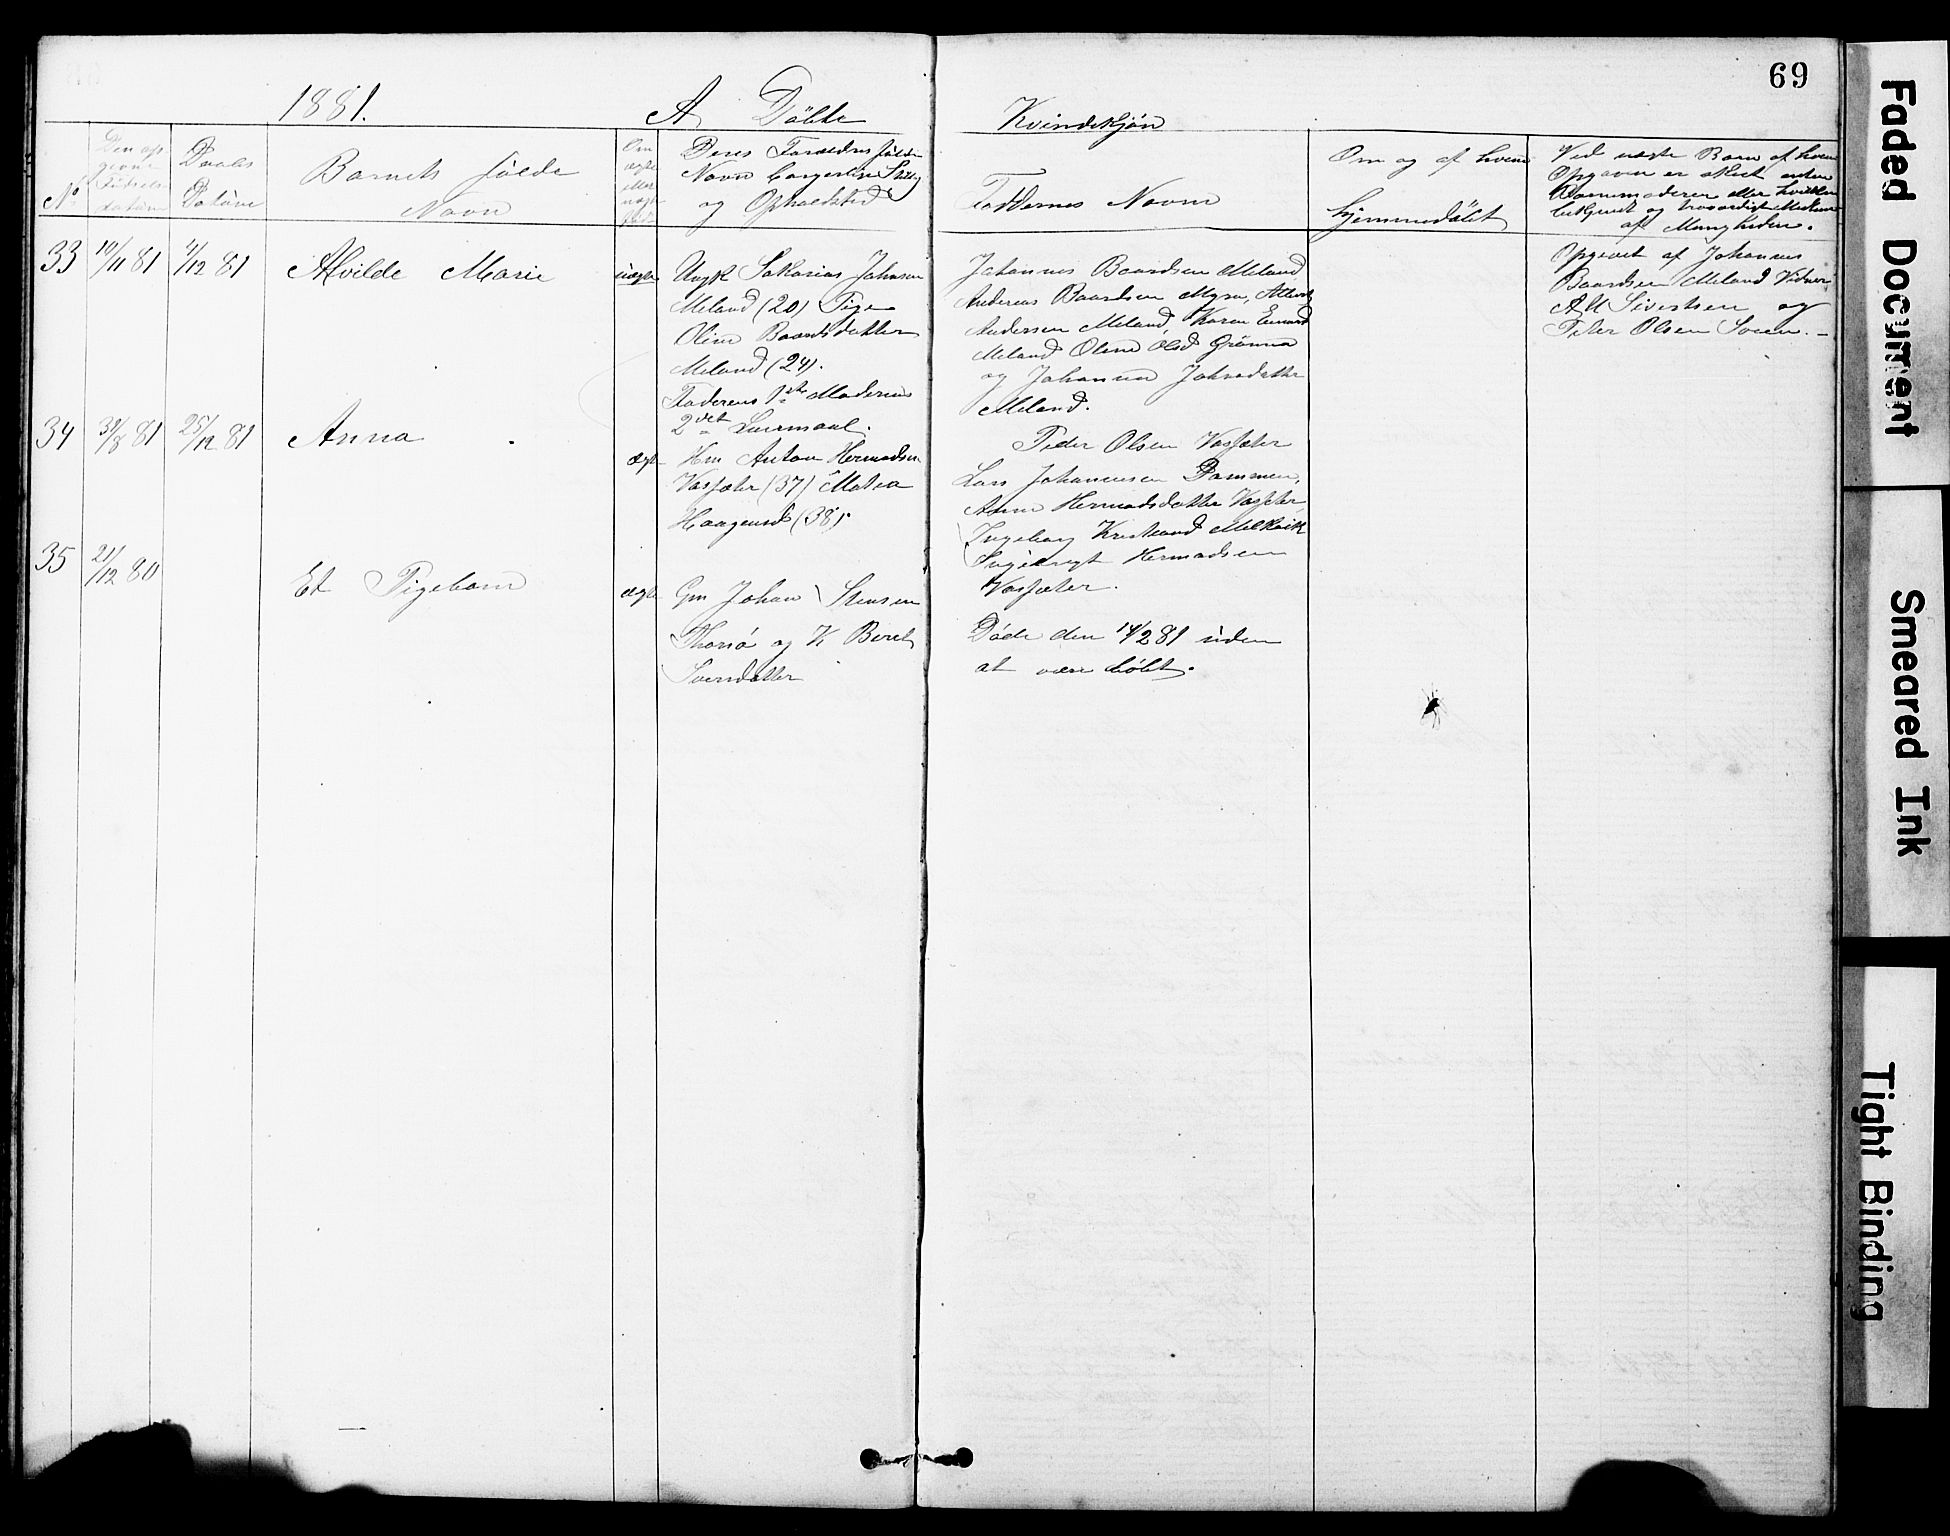 69
1881.
A Döbte
Kvindekjøn
No
Den op
givne
Fødsels
datum
Daabs
Datum
Barnets fulde
Navn
Om
ægte
eller
uægte
født
Deres Forældres fulde
Navn borgerlige Stilling
og Opholdsted
Faddernes Navne
Om og af hvem
hjemmedøbt
Ved uægte Børn af hvem
Opgaven er skeet enten
Barnmoderen eller hvilken
bekjendt og troværdigt
af Menigheden.
33
10/11 81
4/12 81
Alvilde Marie
uægte
Ungk Sakarias Johnsen
Meland (20) Pige
Oline Baardsdatter
Meland (24).
Faderens 1ste Moderens
2det Leiermaal.
Johannes Baardsen Meland
Andreas Baardsen Myra, Albert
Andersen Meland, Karen
Meland Oline Olsd Grønna
og Johanna Johnsdatter
Meland.
Opgivet af Johannes
Baardsen Meland Vidner
A M Sivertsen og
Peter Olsen Sveen. -
34
30/8 81
25/12 81
Anna
ægte
Hm Anton Hermodsen
Vassæter (37) Matea
Haagensd (38).
Peder Olsen Vassæter
Lars Johannesen Dammen,
Anne Hermodsdatter Vassæter,
Ingeborg Melkvik
Ingebrigt Hermodsen
Vassæter.
35
21/12 80
Et Pigebarn
ægte
Gm Johan Stensen
Thorsø og K Beret
Sversdatter
Døde den 14/2 81 uden
at være døbt.
Faded Document
Smeared Ink
Tight Binding